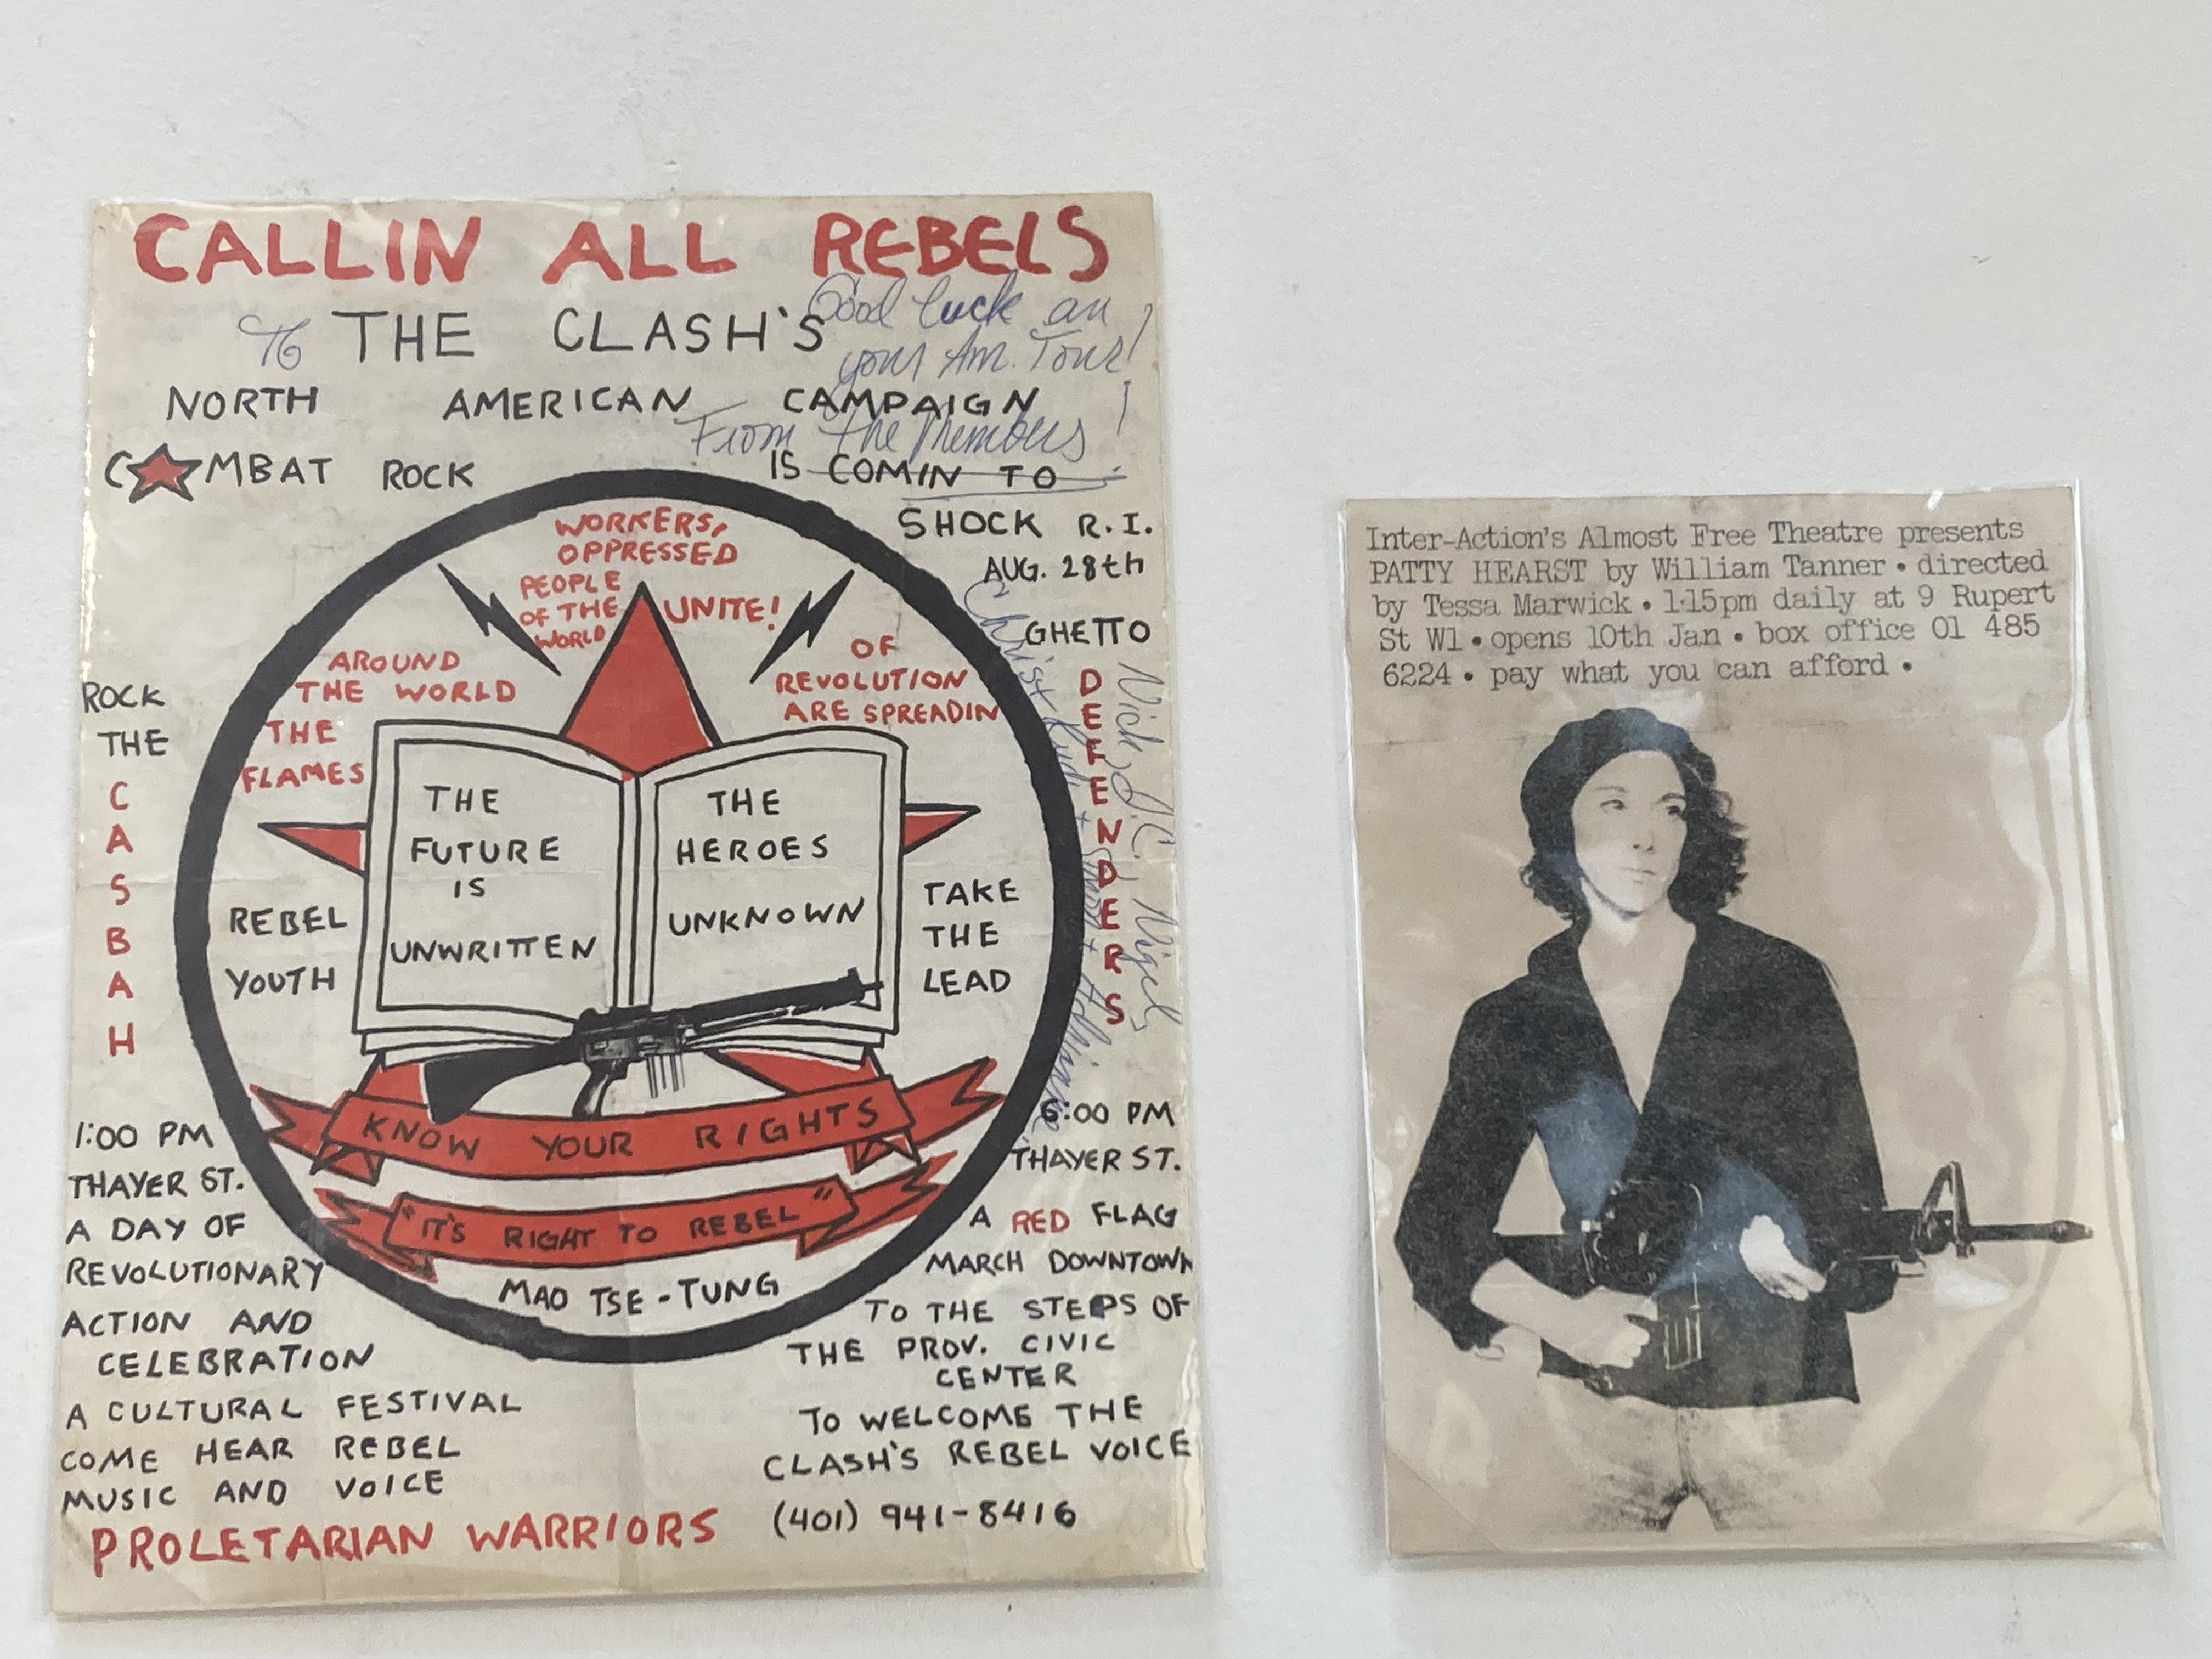 CALLIN ALL REBELS
To THE CLASH'S
Good luck on
your Am. Tour!
NORTH AMERICAN CAMPAIGN
From The Members!
C★MBAT ROCK IS COMIN TO
SHOCK R.I.
AUG. 28th
WORKERS,
OPPRESSED
PEOPLE
OF THE
WORLD
UNITE!
AROUND
THE WORLD
THE
FLAMES
OF
REVOLUTION
ARE SPREADIN
ROCK
THE
C
A
S
B
A
H
GHETTO
D
E
F
E
N
D
E
R
S
Nick, J.C., Nigel,
Chris +
+ Adrian
THE
FUTURE
IS
UNWRITTEN
THE
HEROES
UNKNOWN
REBEL
YOUTH
TAKE
THE
LEAD
KNOW YOUR RIGHTS
"IT'S RIGHT TO REBEL"
MAO TSE-TUNG
1:00 PM
THAYER ST.
A DAY OF
REVOLUTIONARY
ACTION AND
CELEBRATION
A CULTURAL FESTIVAL
COME HEAR REBEL
MUSIC AND VOICE
PROLETARIAN WARRIORS
6:00 PM
THAYER ST.
A RED FLAG
MARCH DOWNTOWN
TO THE STEPS OF
THE PROV. CIVIC
CENTER
TO WELCOME THE
CLASH'S REBEL VOICE
(401) 941-8416
Inter-Action's Almost Free Theatre presents
PATTY HEARST by William Tanner • directed
by Tessa Marwick • 1·15pm daily at 9 Rupert
St W1 • opens 10th Jan • box office 01 485
6224 • pay what you can afford •